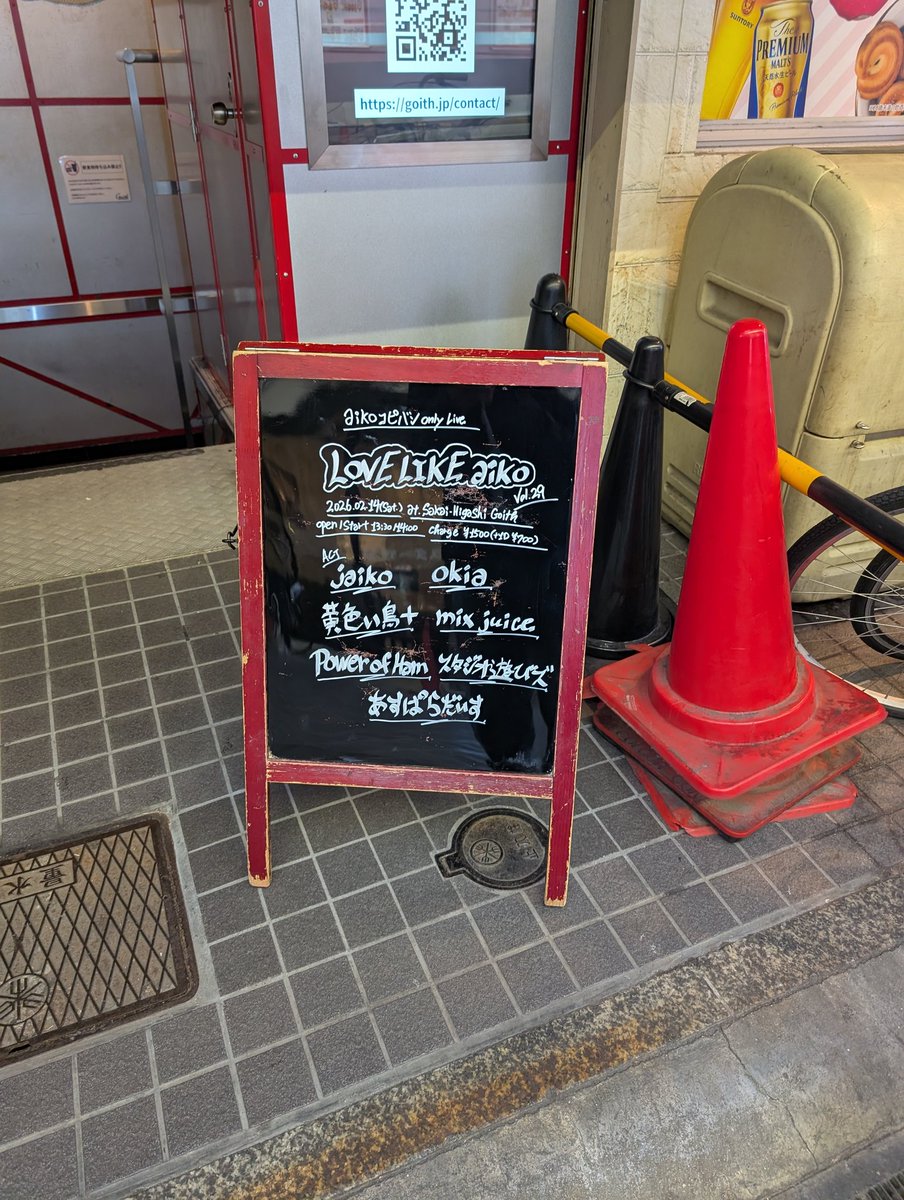 https://goith.jp/contact/
SUNTORY
The
PREMIUM
MALT'S
天然水生ビール
aikoコピバン only Live
LOVE LIKE aiko
Vol.29
2026.02.14(Sat.) at. Sakai-Higashi Goith
open/Start 13:30/14:00 charge ¥1500(+1D ¥700)
ACT
jaiko okia
黄色い鳥+ mix juice
Power of Ham スタジオ遊びーズ
あすぱらだいす